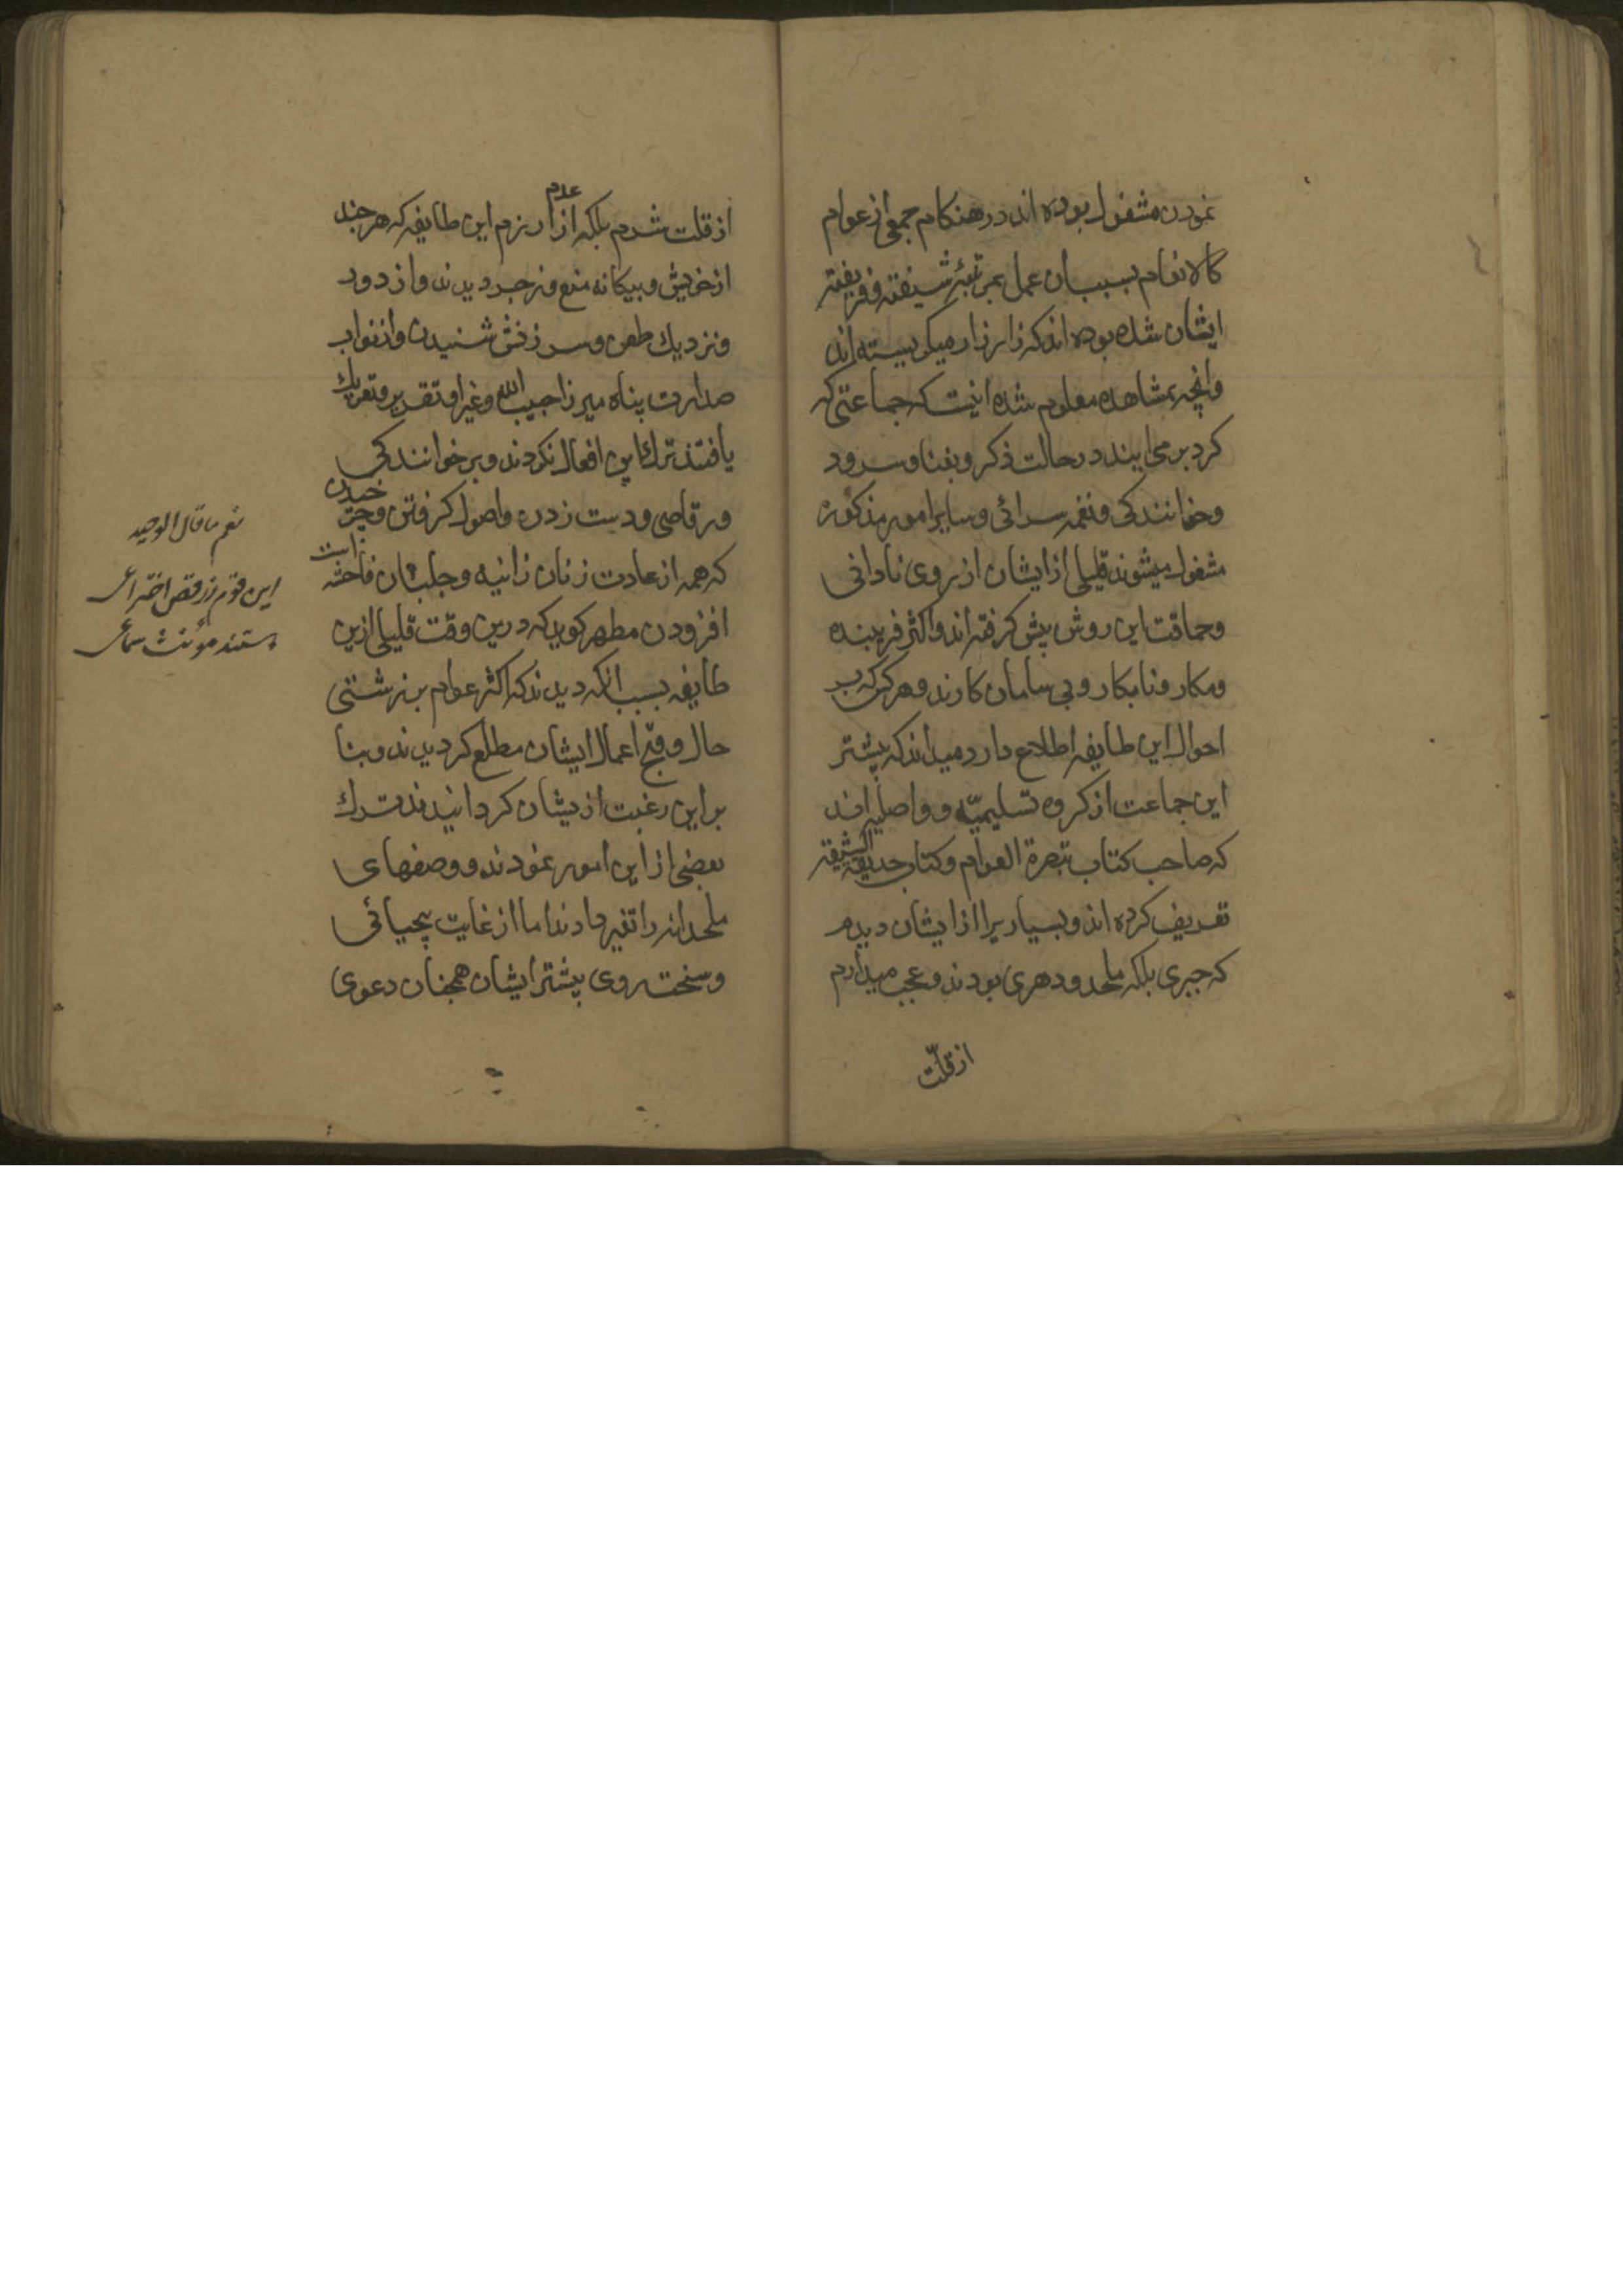 نمودن مشغول بوده اند در هنكام جمعی از عوام
كالانعام بسبب ان عمل بمرتبهٔ شیفته و فریفته
ایشان شده بوده اند كه زار زار میكریسته اند
وانچه بمشاهده معلوم شده اینست كه جماعتی كه
كرد بر می ایند در حالت ذكر و بغنا وسرود
وخوانندكی ونغمه سرائی وسایر امور مذكوره
مشغول میشوند قلیلی از ایشان از روی نادانی
وحماقت این روش پیش كرفته اند واكثر فریبنده
ومكار ونابكار وبی سامان كارند وهركس كه بر
احوال این طایفه اطلاع دارد میداند كه بیشتر
این جماعت از كروه تسلیمیّه و واصلیه اند
كه صاحب كتاب تبصرة العوام وكتاب حدیقة الشیعه
تعریف كرده اند وبسیاریرا از ایشان دیدم
كه جبری بلكه ملحد ودهری بودند وعجب میدارم
از قلّت
از قلت شرم بلكه از عدم ازرم این طایفه كه هرچند
از خویش وبیكانه منع وزجر دیدند واز دور
ونزدیك طعن وسرزنش شنیدن واز نواب
صدارت پناه میرزا حبیب الله وغیر او تقدیر وتعریك
یافتند ترك این افعال نكردند وبر خوانندكی
ورقاصی ودست زدن واصول كرفتن وچرخیدن
كه همه از عادت زنان زانیه وجلبان فاحشه است
افزودن مطهر كوید كه درین وقت قلیلی ازین
طایفه بسبب انكه دیدند كه اكثر عوام بر زشتی
حال وقبح اعمال ایشان مطلع كردیدند وبنا
براین رغبت از یشان كردانیدند ترك
بعضی از این امور نمودند ووصفهای
ملحدانه را تغیر دادند اما از غایت بیحیائی
وسخت روی بیشتر ایشان همچنان دعوی
نعم ما قال الوحید
این قوم زرقص اختراعی
هستند مؤنث سماعی